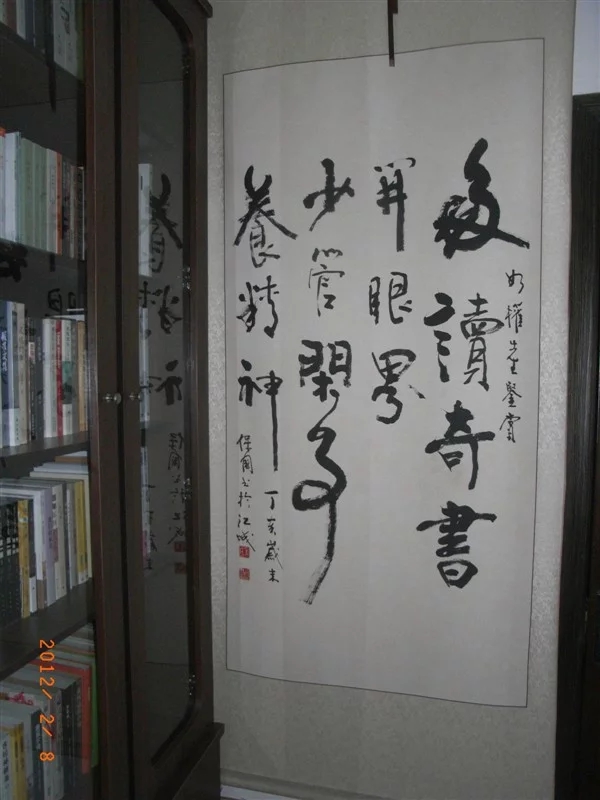 多讀奇書
如權先生鑒賞
開眼界
少管閑事
養精神
丁亥歲末
保國書於江城
2012/ 2/ 8